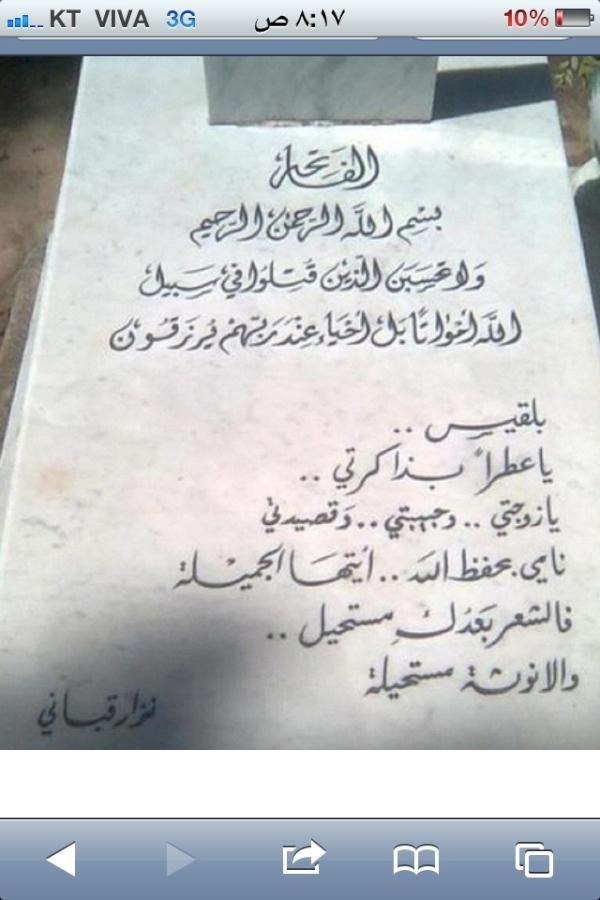 KT VIVA 3G ٨:١٧ ص 10%
الفاتحة
بسم الله الرحمن الرحيم
ولا تحسبن الذين قتلوا في سبيل
الله امواتا بل احياء عند ربهم يرزقون
بلقيس ..
يا عطراً بذاكرتي ..
يا زوجتي .. وحبيبتي .. وقصيدتي
نامي بحفظ الله .. أيتها الجميلة
فالشعر بعدك مستحيل ..
والانوثة مستحيلة
نزار قباني